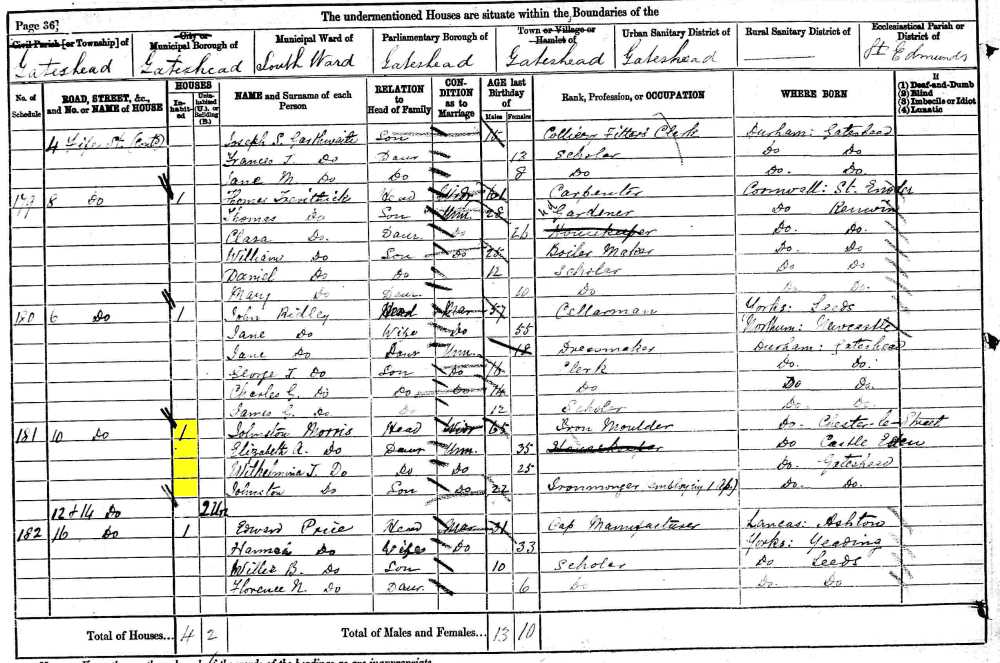 The undermentioned Houses are situate within the Boundaries of the
Page 36]
Civil Parish [or Township] of City or Municipal Borough of Municipal Ward of Parliamentary Borough of Town or Village or Hamlet of Urban Sanitary District of Rural Sanitary District of Ecclesiastical Parish or District of
Gateshead Gateshead South Ward Gateshead Gateshead Gateshead St Edmunds
No. of Schedule ROAD, STREET, &c., and No. or NAME of HOUSE HOUSES In-habit-ed Unin-habited (U.), or Building (B.) NAME and Surname of each Person RELATION to Head of Family CON-DITION as to Marriage AGE last Birthday of Males Females Rank, Profession, or OCCUPATION WHERE BORN If (1) Deaf-and-Dumb (2) Blind (3) Imbecile or Idiot (4) Lunatic
4 Fife St (Contd) Joseph S. Garthwaite Son 15 Colliery Fitters Clerk Durham: Gateshead
Frances J. Do Daur 13 Scholar Do Do
Jane M. Do Do 8 Do Do. Do.
179 8 Do 1 Thomas Head Widr 61 Carpenter Cornwall: St.
Thomas Do Son Unm. 28 Gardener Do Kenwin
Clara Do. Daur Do 26 Housekeeper Do. Do.
William Do Son Do 25 Boiler Maker Do. Do.
Daniel Do Do 12 Scholar Do Do
Mary Do Daur. 10 Do Do Do
180 6 Do 1 John Ridley Head Mar 57 Cellarman Yorks: Leeds
Jane Do Wife Do 55 Northum: Newcastle
Jane Do Daur Unm. 18 Dressmaker Durham: Gateshead
George T. Do Son Do 16 Clerk Do. Do.
Charles G. Do Do Do 14 Do Do Do.
James G. Do. Do 12 Scholar Do. Do.
181 10 Do 1 Johnston Morris Head Widr 65 Iron Moulder Do. Chester-le-Street
Elizabeth A. Do Daur Unm. 35 Housekeeper Do Castle Eden
Wilhelmina J. Do Do Do 25 Do. Gateshead
Johnston Do Son Do 22 Ironmonger employing 1 Do. Do.
12 & 14 Do 2 Un
182 16 Do 1 Edward Price Head Mar 31 Cap Manufacturer Lancas: Ashton
Hannah Do Wife Do 33 Yorks: Yeading
Willie B. Do Son 10 Scholar Do Leeds
Florence N. Do Daur. 6 Do Do. Do
Total of Houses... 4 2 Total of Males and Females... 13 10